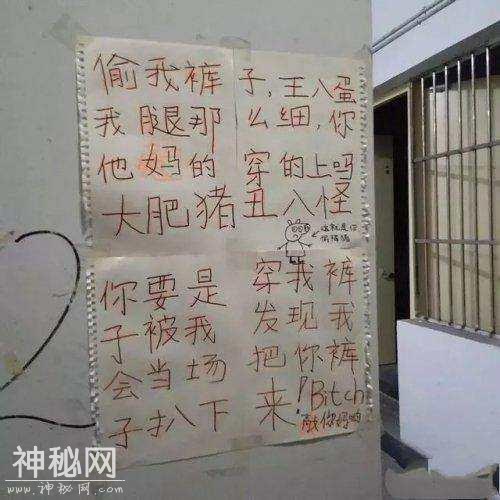 偷我裤子,王八蛋
我腿那么细,你
他妈的穿的上吗
大肥猪丑八怪
这就是你
你要是穿我裤
子被我发现我
会当场把你裤
子扒下来!Bitch
2
神秘网
WWW.SMW.COM